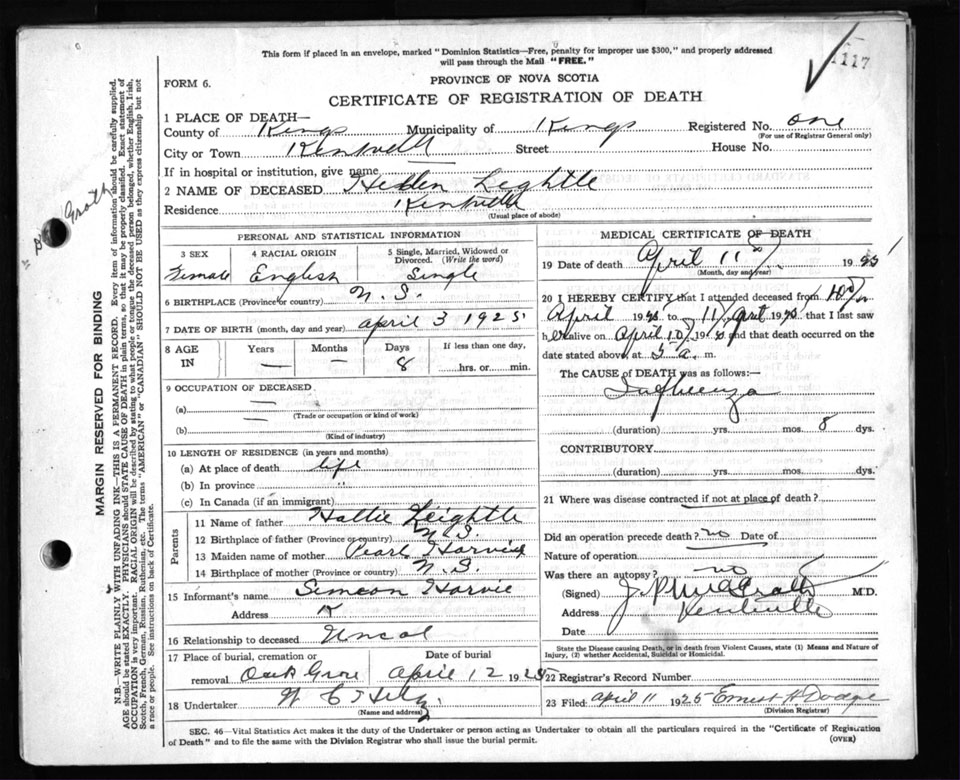 This form if placed in an envelope, marked "Dominion Statistics—Free, penalty for improper use $300," and properly addressed
will pass through the Mail "FREE."
1117
FORM 6.
PROVINCE OF NOVA SCOTIA
CERTIFICATE OF REGISTRATION OF DEATH
1 PLACE OF DEATH—
County of Kings Municipality of Kings Registered No. one
(For use of Registrar General only)
City or Town Kentville Street House No.
If in hospital or institution, give name
2 NAME OF DECEASED Hellen Leightle
Residence Kentville
(Usual place of abode)
PERSONAL AND STATISTICAL INFORMATION
3 SEX
Female
4 RACIAL ORIGIN
English
5 Single, Married, Widowed or
Divorced. (Write the word)
Single
6 BIRTHPLACE (Province or country) N.S.
7 DATE OF BIRTH (month, day and year) april 3 1925
8 AGE
IN
Years
—
Months
—
Days
8
If less than one day,
hrs. or min.
9 OCCUPATION OF DECEASED
(a) —
(Trade or occupation or kind of work)
(b)
(Kind of industry)
10 LENGTH OF RESIDENCE (in years and months)
(a) At place of death life
(b) In province "
(c) In Canada (if an immigrant)
Parents
11 Name of father Hallie Leightle
12 Birthplace of father (Province or country) N.S.
13 Maiden name of mother Pearl Harvie
14 Birthplace of mother (Province or country) N.S.
15 Informant's name Simeon Harvie
Address K
16 Relationship to deceased Uncal
17 Place of burial, cremation or
removal Oak Grove
Date of burial
April 12 1925
18 Undertaker
(Name and address)
MEDICAL CERTIFICATE OF DEATH
19 Date of death April 11 1925
(Month, day and year)
20 I HEREBY CERTIFY that I attended deceased from 10
April 1925 to 11 April 1925 that I last saw
h er alive on April 10 1925 and that death occurred on the
date stated above, at 5 a. m.
The CAUSE OF DEATH was as follows:—
Influenza
(duration) yrs. mos. 8 dys.
CONTRIBUTORY
(duration) yrs. mos. dys.
21 Where was disease contracted if not at place of death?
Did an operation precede death? no Date of
Nature of operation
Was there an autopsy? no
(Signed) J. P. McGrath M.D.
Address Kentville
Date
State the Disease causing Death, or in death from Violent Causes, state (1) Means and Nature of
Injury, (2) whether Accidental, Suicidal or Homicidal.
22 Registrar's Record Number
23 Filed april 11 1925 Ernest H. Dodge
(Division Registrar)
SEC. 46—Vital Statistics Act makes it the duty of the Undertaker or person acting as Undertaker to obtain all the particulars required in the "Certificate of Registration
of Death" and to file the same with the Division Registrar who shall issue the burial permit.
(OVER)
MARGIN RESERVED FOR BINDING
N.B.—WRITE PLAINLY WITH UNFADING INK—THIS IS A PERMANENT RECORD. Every item of information should be carefully supplied.
AGE should be stated EXACTLY. PHYSICIANS should STATE CAUSE OF DEATH in plain terms, so that it may be properly classified. Exact statement of
OCCUPATION is very important. RACIAL ORIGIN will be described by stating to what people or tongue the deceased person belonged, whether English, Irish,
Scotch, French, German, Russian, Ruthenian, etc. The terms "AMERICAN" or "CANADIAN" SHOULD NOT BE USED as they express citizenship but not
a race or people. See instructions on back of Certificate.